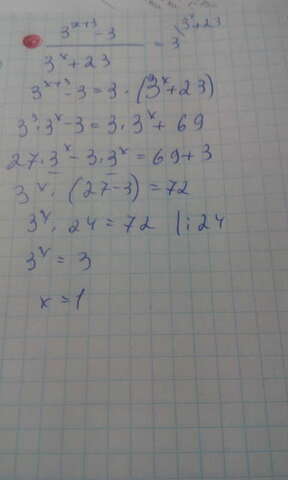 3^{x+3} - 3 / 3^x + 23 = 3 \ 3^x+23
3^{x+3} - 3 = 3 · (3^x + 23)
3^3 · 3^x - 3 = 3 · 3^x + 69
27 · 3^x - 3 · 3^x = 69 + 3
3^x · (27 - 3) = 72
3^x · 24 = 72 | : 24
3^x = 3
x = 1